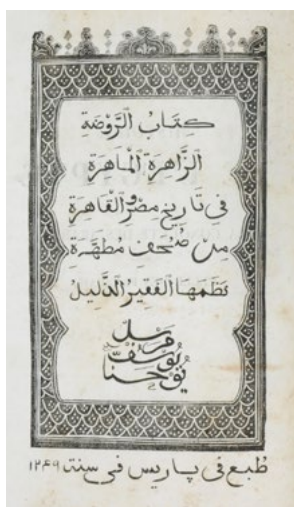 كِتَابُ الرَّوْضَةِ
الزَّاهِرَةِ الْمَاهِرَةِ
فِي تَارِيخِ مِصْرَ وَالْقَاهِرَةِ
مِنْ صُحُفٍ مُطَهَّرَةٍ
نَظَمَهَا الْفَقِيرُ الذَّلِيلُ
مَرْسَل
يُوسُف
يُوحَنَّا
طُبِعَ فِي پاريس فِي سنة ١٢٤٩